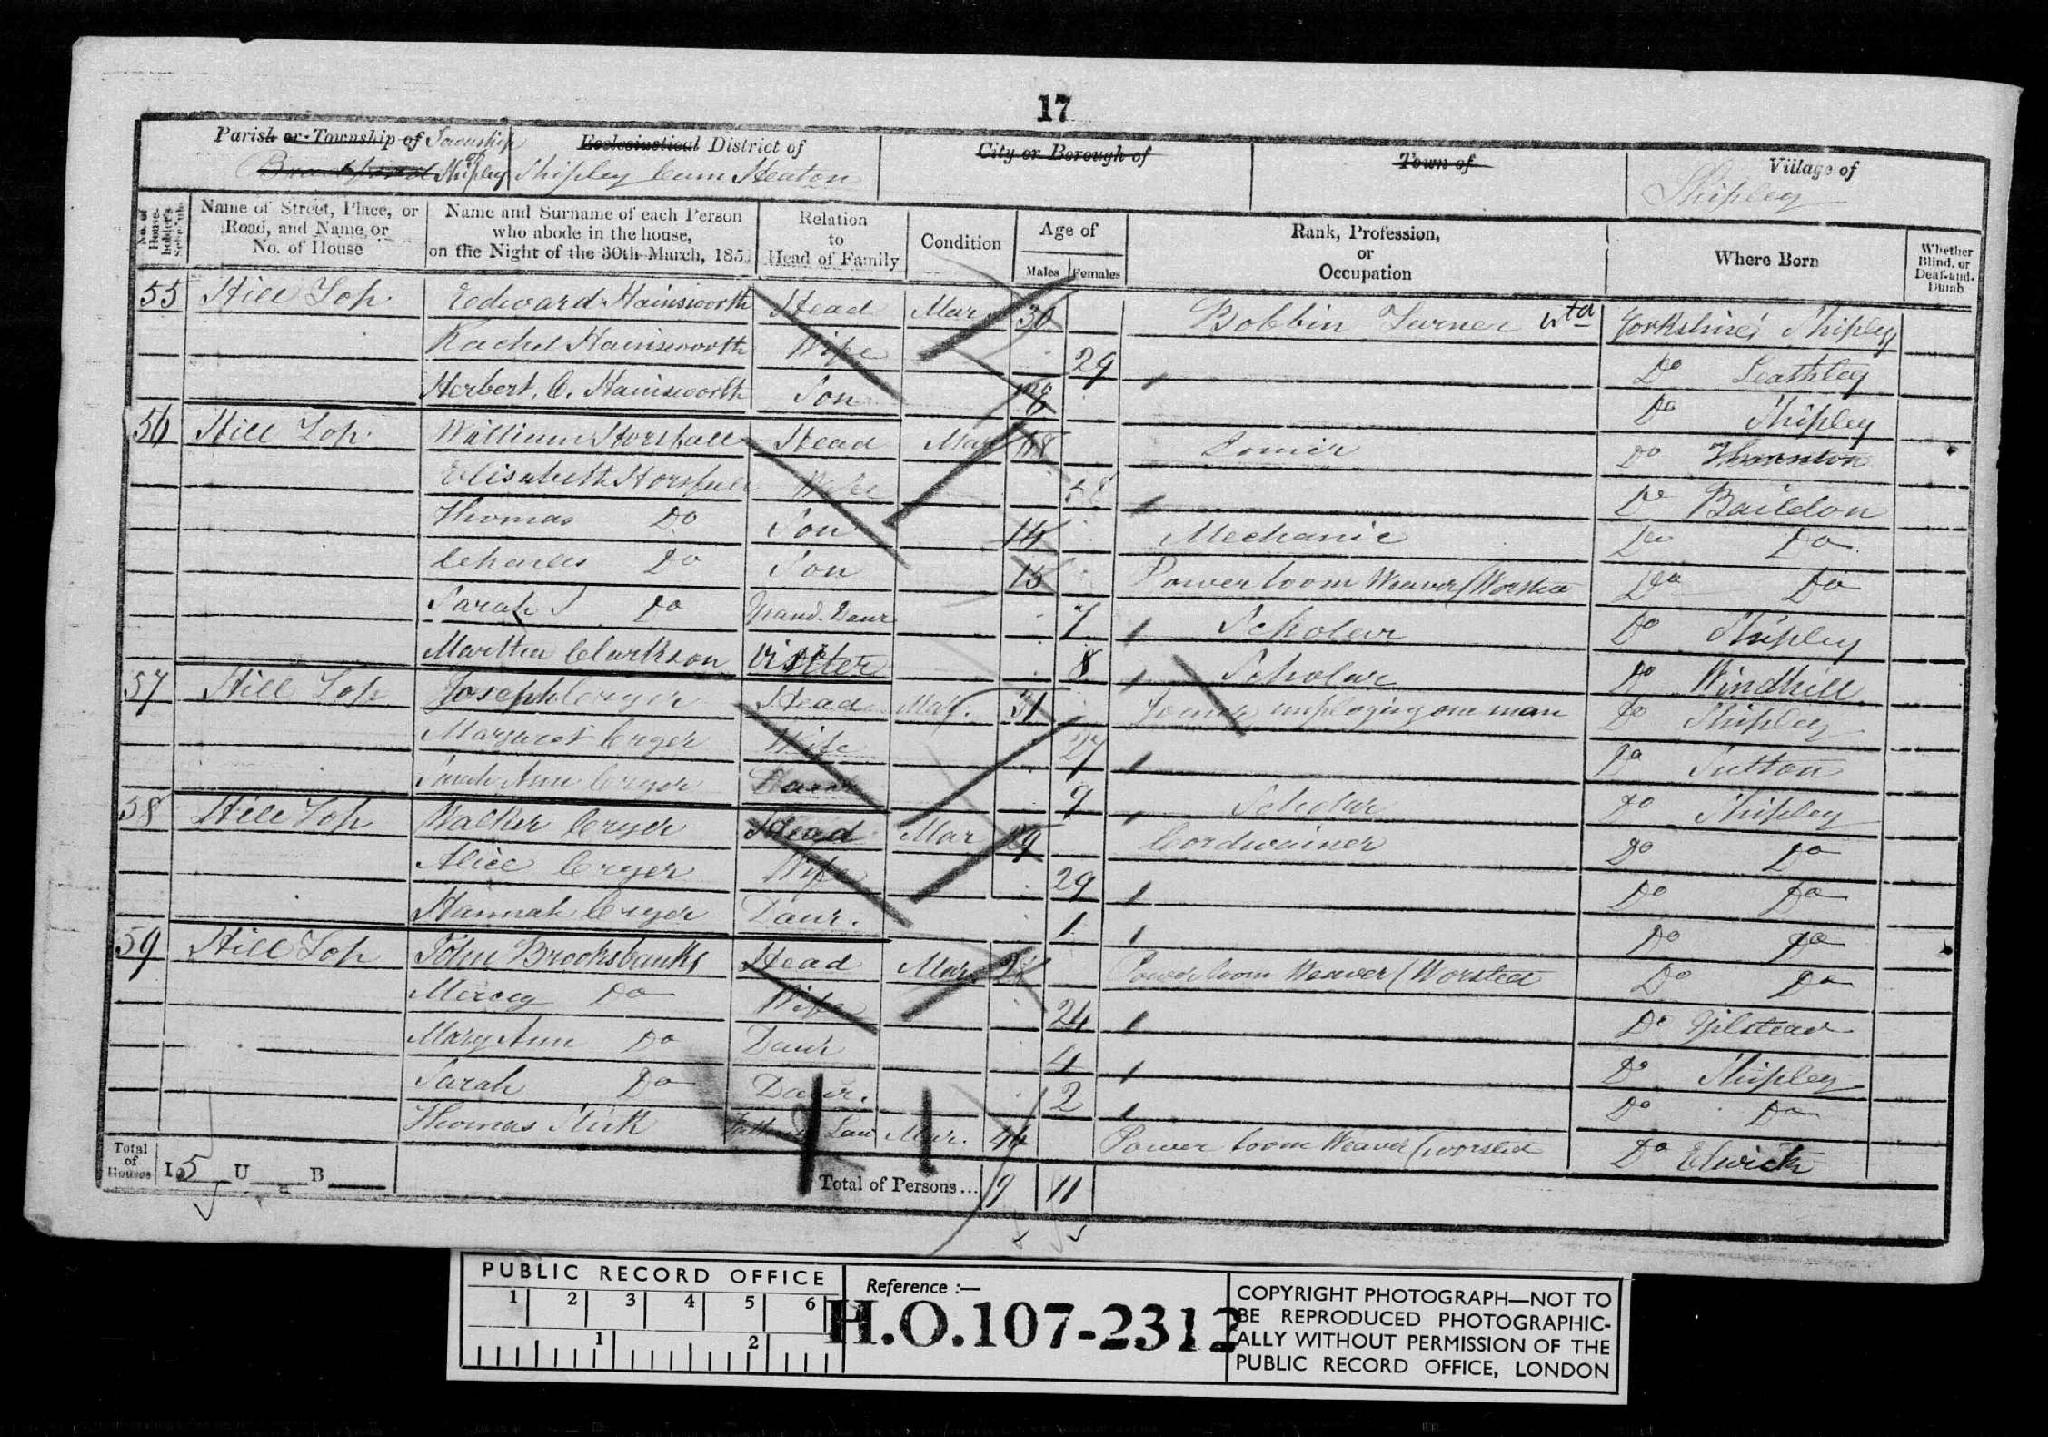 17
Parish or Township of Township of
Bradford Shipley
Ecclesiastical District of
Shipley Cum Heaton
City or Borough of
Town of
Village of
Shipley
No. of House-holder's Schedule
Name of Street, Place, or Road, and Name or No. of House
Name and Surname of each Person who abode in the house, on the Night of the 30th March, 1851
Relation to Head of Family
Condition
Age of
Males Females
Rank, Profession, or Occupation
Where Born
Whether Blind, or Deaf-and-Dumb
55 Hill Top Edward Hainsworth Head Mar 30 Bobbin Turner Yorkshire Shipley
Rachel Hainsworth Wife 29 Do Leathley
Herbert. C. Hainsworth Son Do Shipley
56 Hill Top William Horsfall Head Mar Do Thornton
Elisabeth Horsfall Wife Do Baildon
Thomas Do Son 14 Mechanic Do Do
Charles Do Son 13 Power loom Weaver (Worsted Do Do
Sarah Do Grand Daur 7 Scholar Do Shipley
Martha Clarkson Visitter 8 Scholar Do Windhill
57 Hill Top Joseph Cryer Head Mar. 31 Joiner employing one man Do Shipley
Margaret Cryer Wife 27 Do Sutton
Sarah Ann Cryer 7 Scholar Do Shipley
58 Hill Top Walker Cryer Head Mar 29 Cordwainer Do Do
Alice Cryer Wife 29 Do Do
Hannah Cryer Daur. 1 Do Do
59 Hill Top John Brooksbanks Head Mar Power loom Weaver (Worsted Do Do
Mercy Do Wife 24 Do Gilstead
Mary Ann Do Daur 4 Do Shipley
Sarah Do Daur. 2 Do Do
Thomas Father Law Mar. Power loom Weaver (worsted Do Elwick
Total of Houses I 5 U B
Total of Persons... 9 11
PUBLIC RECORD OFFICE
1 2 3 4 5 6
1 2
Reference :—
H.O. 107-2312
COPYRIGHT PHOTOGRAPH—NOT TO
BE REPRODUCED PHOTOGRAPHIC-
ALLY WITHOUT PERMISSION OF THE
PUBLIC RECORD OFFICE, LONDON